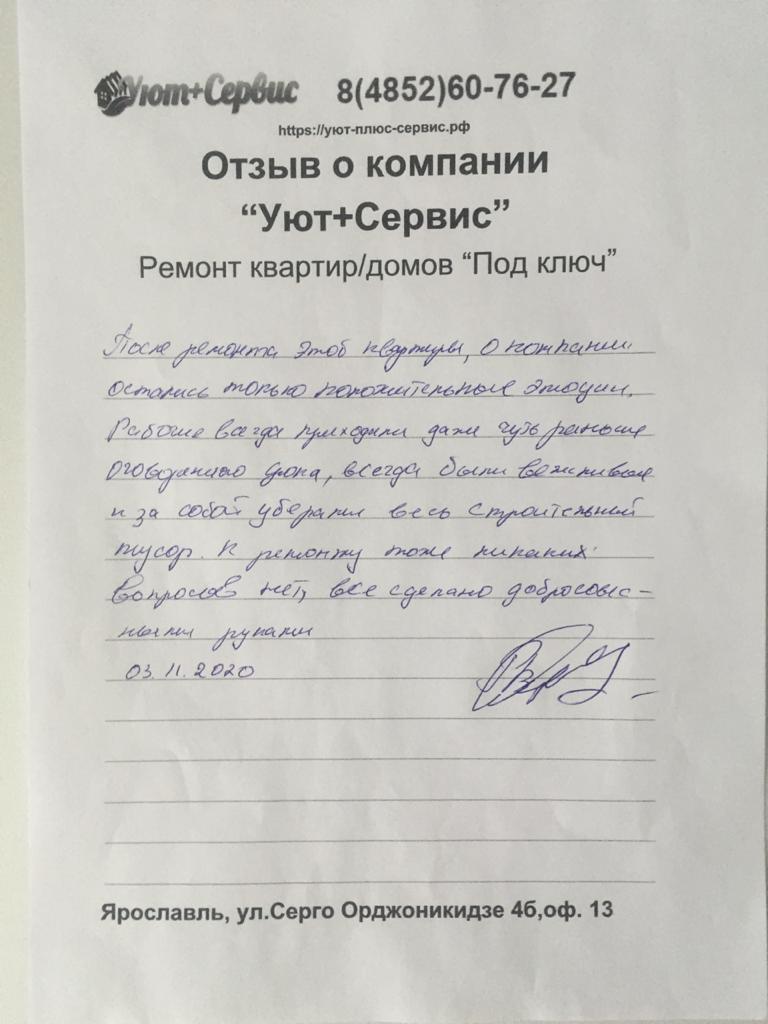 Уют+Сервис 8(4852)60-76-27
https://уют-плюс-сервис.рф
Отзыв о компании
“Уют+Сервис”
Ремонт квартир/домов “Под ключ”
После ремонта этой квартиры, о компании
остались только положительные эмоции.
Рабочие всегда приходили даже чуть раньше
оговоренного срока, всегда были вежливые
и за собой уберали весь строительный
мусор. К ремонту тоже никаких
вопросов нет, все сделано добросовес-
ными руками
03.11.2020
Ярославль, ул.Серго Орджоникидзе 4б,оф. 13